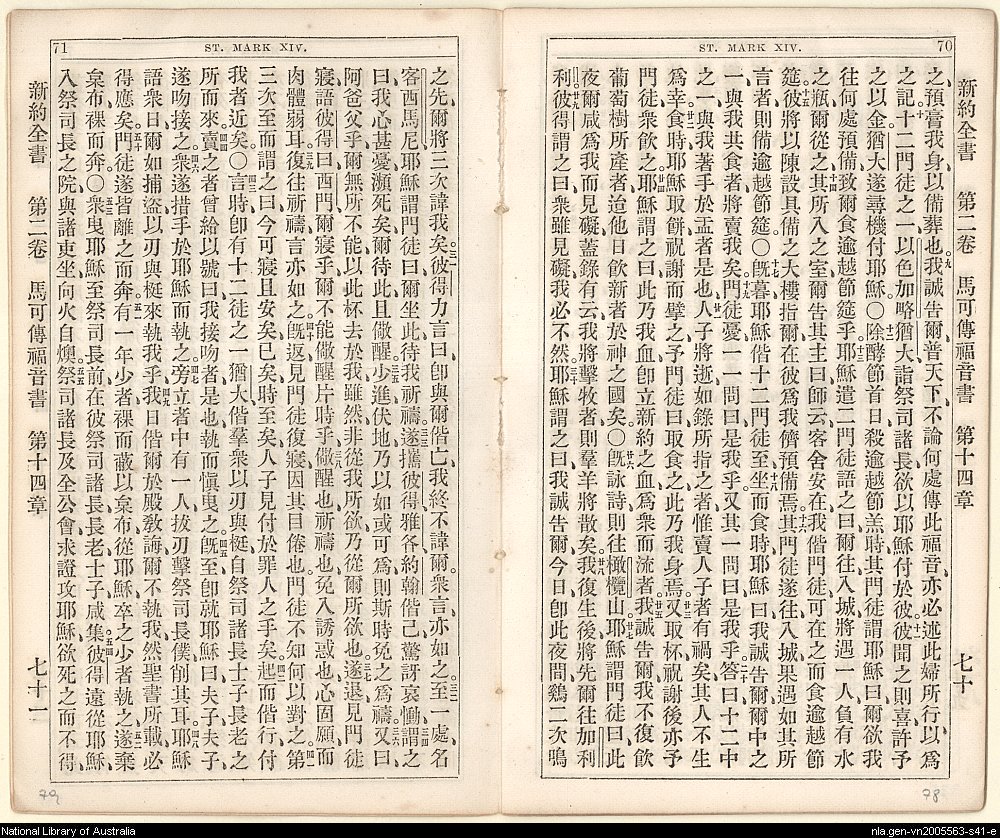 70
ST. MARK XIV.
新約全書 第二卷 馬可傳福音書 第十四章 七十
之、預膏我身、以備葬也、九我誠告爾、普天下、不論何處傳此福音、亦必述此婦所行、以爲
之記、十十二門徒之一、以色加畧猶大、詣祭司諸長、欲以耶穌付於彼、十一彼聞之則喜、許予
之以金、猶大遂尋機付耶穌。〇十二除酵節首日、殺逾越節羔時、其門徒謂耶穌曰、爾欲我
往何處預備、致爾食逾越節筵乎、十三耶穌遣二門徒、語之曰、爾往入城、將遇一人負有水
之瓶、爾從之、十四其所入之室、爾告其主曰、師云、客舍安在、我偕門徒可在之而食逾越節
筵、十五彼將以陳設具備之大樓指爾、在彼爲我儕預備焉、十六其門徒遂往入城、果遇如其所
言者、則備逾越節筵。〇十七旣暮、耶穌偕十二門徒至、十八坐而食時、耶穌曰、我誠告爾、爾中之
一、與我共食者、將賣我矣、十九門徒憂、一一問曰、是我乎、又其一問曰、是我乎、二十答曰、十二中
之一、與我著手於盂者是也、廿一人子將逝、如錄所指之者、惟賣人子者有禍矣、其人不生
爲幸、廿二食時、耶穌取餅祝謝而擘之、予門徒曰、取食之、此乃我身焉、廿三又取杯祝謝後、亦予
門徒衆飲之、廿四耶穌謂之曰、此乃我血、卽立新約之血、爲衆而流者、廿五我誠告爾、我不復飲
葡萄樹所產者、迨他日飲新者於神之國矣。〇廿六旣詠詩、則往橄欖山、廿七耶穌謂門徒曰、此
夜爾咸爲我而見礙、蓋錄有云、我將擊牧者、則羣羊將散矣、廿八我復生後、將先爾往加利
利、廿九彼得謂之曰、衆雖見礙、我必不然、三十耶穌謂之曰、我誠告爾、今日卽此夜間、鷄二次鳴
71
ST. MARK XIV.
之先、爾將三次諱我矣、三一彼得力言曰、卽與爾偕亡、我終不諱爾、衆言亦如之、三二至一處、名
客西馬尼、耶穌謂門徒曰、爾坐此、待我祈禱、三三遂攜彼得雅各約翰偕己、驚訝哀慟、三四謂之
曰、我心甚憂、瀕死矣、爾待此且儆醒、三五少進、伏地乃以如或可爲、則斯時免之爲禱、三六又曰、
阿爸父乎、爾無所不能、以此杯去於我、雖然非從我所欲、乃從爾所欲也、三七遂退、見門徒
寢、語彼得曰、西門、爾寢乎、爾不能儆醒片時乎、三八儆醒也、祈禱也、免入誘惑也、心固願、而
肉體弱耳、三九復往祈禱、言亦如之、四十旣返、見門徒復寢、因其目倦也、門徒不知何以對之、四一第
三次至、而謂之曰、今可寢且安矣、已矣、時至矣、人子見付於罪人之手矣、四二起而偕行、付
我者近矣。〇四三言時、卽有十二徒之一猶大、偕羣衆以刃與梃、自祭司諸長士子長老之
所而來、四四賣之者、曾給以號曰、我接吻者是也、執而愼曳之、四五旣至、卽就耶穌曰、夫子夫子、
遂吻接之、四六衆遂措手於耶穌而執之、四七旁立者中、有一人拔刃、擊祭司長僕、削其耳、四八耶穌
語衆曰、爾如捕盜、以刃與梃來執我乎、四九我日偕爾於殿敎誨、爾不執我、然聖書所載、必
得應矣、五十門徒遂皆離之而奔、五一有一年少者、裸而蔽以枲布、從耶穌、卒之少者執之、五二遂棄
枲布、裸而奔。〇五三衆曳耶穌至祭司長前、在彼祭司諸長長老士子咸集、五四彼得遠從耶穌、
入祭司長之院、與諸吏坐、向火自燠、五五祭司諸長及全公會、求證攻耶穌、欲死之而不得、
新約全書 第二卷 馬可傳福音書 第十四章 七十一
79
78
National Library of Australia
nla.gen-vn2005563-s41-e